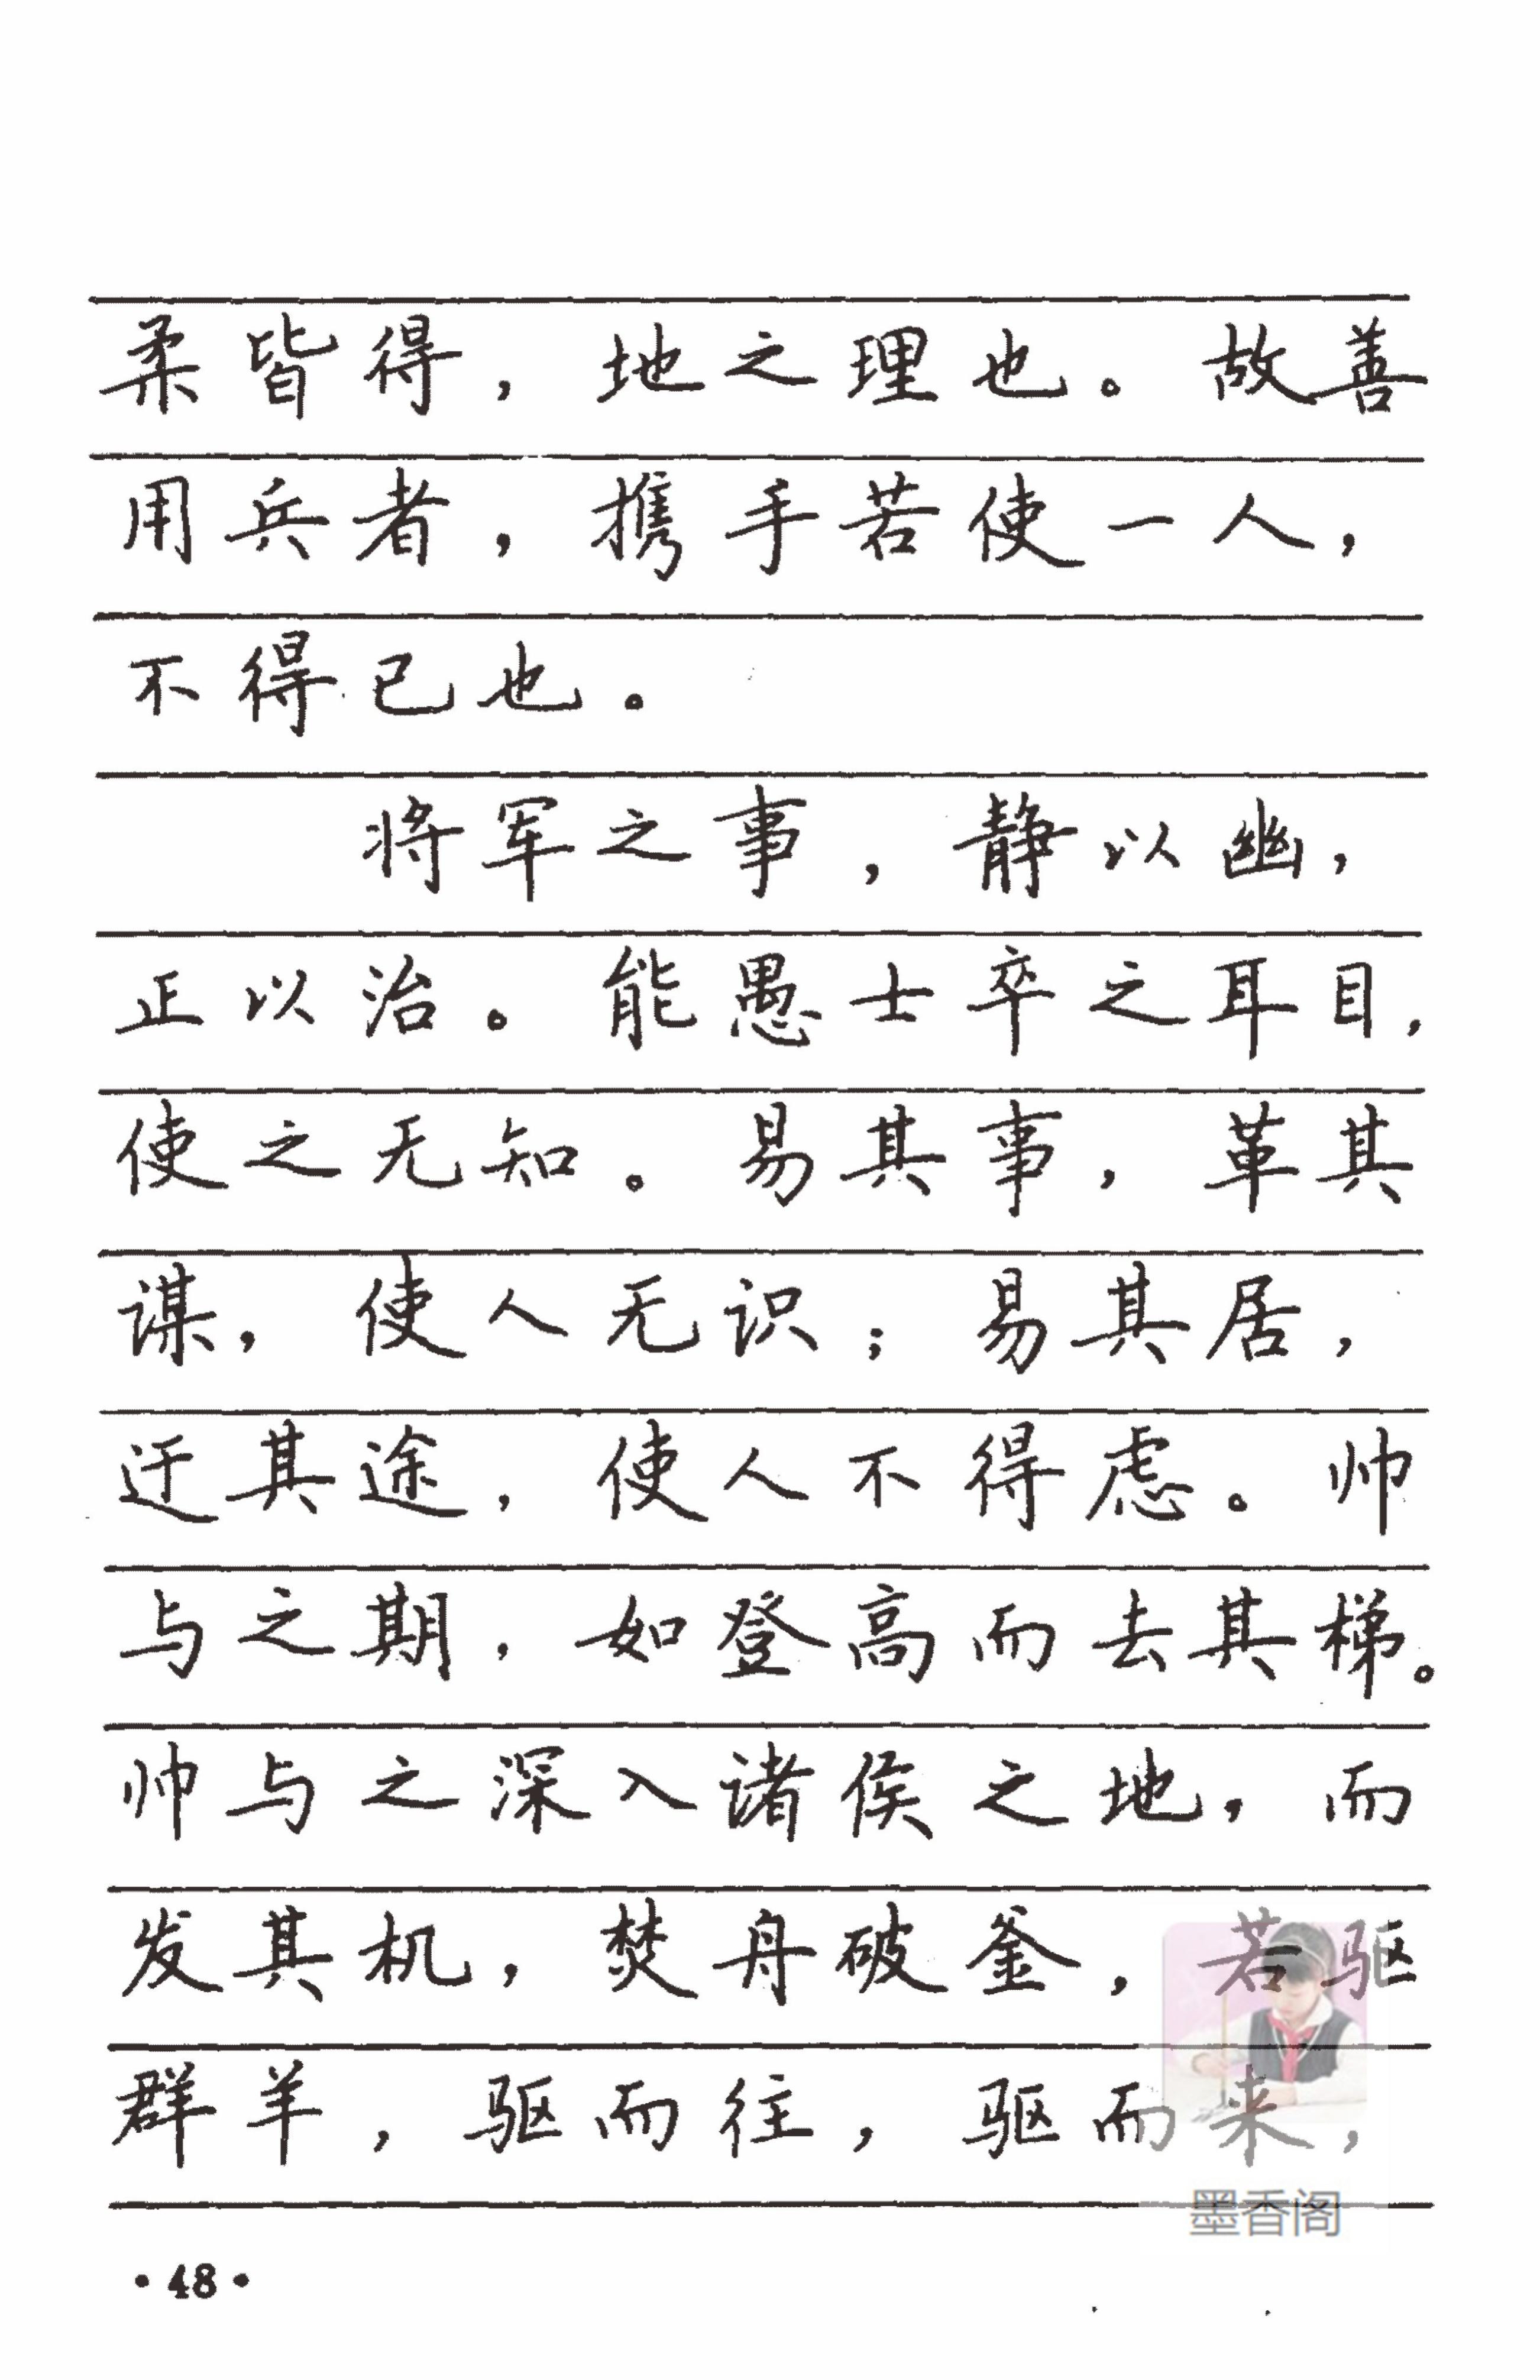 柔皆得，地之理也。故善
用兵者，携手若使一人，
不得已也。
将军之事，静以幽，
正以治。能愚士卒之耳目，
使之无知。易其事，革其
谋，使人无识；易其居，
迂其途，使人不得虑。帅
与之期，如登高而去其梯。
帅与之深入诸侯之地，而
发其机，焚舟破釜，若驱
群羊，驱而往，驱而来，
墨香阁
·48·